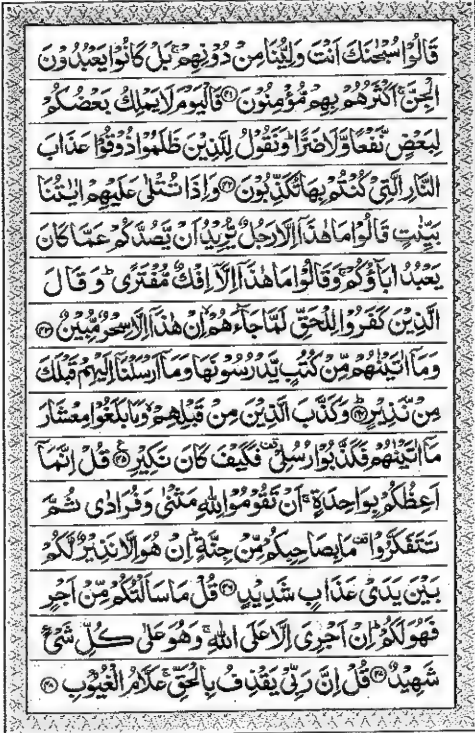 قَالُوْا سُبْحٰنَكَ اَنْتَ وَلِيُّنَا مِنْ دُوْنِهِمْ ۚ بَلْ كَانُوْا يَعْبُدُوْنَ
الْجِنَّ ۚ اَكْثَرُهُمْ بِهِمْ مُّؤْمِنُوْنَ ﴿۴۱﴾ فَالْيَوْمَ لَا يَمْلِكُ بَعْضُكُمْ
لِبَعْضٍ نَّفْعًا وَّلَا ضَرًّا ؕ وَنَقُوْلُ لِلَّذِيْنَ ظَلَمُوْا ذُوْقُوْا عَذَابَ
النَّارِ الَّتِيْ كُنْتُمْ بِهَا تُكَذِّبُوْنَ ﴿۴۲﴾ وَاِذَا تُتْلٰى عَلَيْهِمْ اٰيٰتُنَا
بَيِّنٰتٍ قَالُوْا مَا هٰذَاۤ اِلَّا رَجُلٌ يُّرِيْدُ اَنْ يَّصُدَّكُمْ عَمَّا كَانَ
يَعْبُدُ اٰبَآؤُكُمْ ۚ وَقَالُوْا مَا هٰذَاۤ اِلَّاۤ اِفْكٌ مُّفْتَرًى ؕ وَقَالَ
الَّذِيْنَ كَفَرُوْا لِلْحَقِّ لَمَّا جَآءَهُمْ ۙ اِنْ هٰذَاۤ اِلَّا سِحْرٌ مُّبِيْنٌ ﴿۴۳﴾
وَمَاۤ اٰتَيْنٰهُمْ مِّنْ كُتُبٍ يَّدْرُسُوْنَهَا وَمَاۤ اَرْسَلْنَاۤ اِلَيْهِمْ قَبْلَكَ
مِنْ نَّذِيْرٍ ﴿۴۴﴾ وَكَذَّبَ الَّذِيْنَ مِنْ قَبْلِهِمْ ۙ وَمَا بَلَغُوْا مِعْشَارَ
مَاۤ اٰتَيْنٰهُمْ فَكَذَّبُوْا رُسُلِيْ ۫ فَكَيْفَ كَانَ نَكِيْرِ ﴿۴۵﴾ قُلْ اِنَّمَاۤ
اَعِظُكُمْ بِوَاحِدَةٍ ۚ اَنْ تَقُوْمُوْا لِلّٰهِ مَثْنٰى وَفُرَادٰى ثُمَّ
تَتَفَكَّرُوْا ۫ مَا بِصَاحِبِكُمْ مِّنْ جِنَّةٍ ؕ اِنْ هُوَ اِلَّا نَذِيْرٌ لَّكُمْ
بَيْنَ يَدَيْ عَذَابٍ شَدِيْدٍ ﴿۴۶﴾ قُلْ مَا سَاَلْتُكُمْ مِّنْ اَجْرٍ
فَهُوَ لَكُمْ ؕ اِنْ اَجْرِيَ اِلَّا عَلَى اللّٰهِ ۚ وَهُوَ عَلٰى كُلِّ شَيْءٍ
شَهِيْدٌ ﴿۴۷﴾ قُلْ اِنَّ رَبِّيْ يَقْذِفُ بِالْحَقِّ ۚ عَلَّامُ الْغُيُوْبِ ﴿۴۸﴾